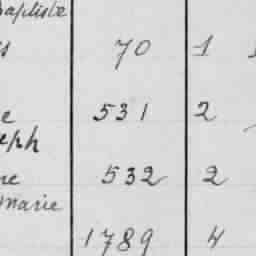 Baptiste
s 70 1
e 531 2
eph
ne 532 2
Marie
1789 4